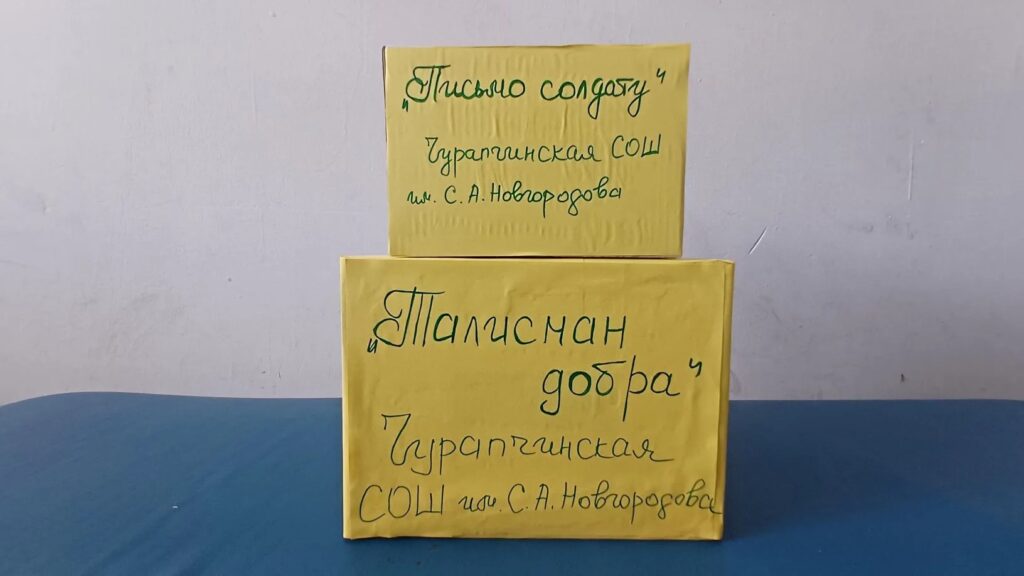 „Письмо солдату"
Чурапчинская СОШ
им. С. А. Новгородова
„Талисман
добра"
Чурапчинская
СОШ им. С. А. Новгородова